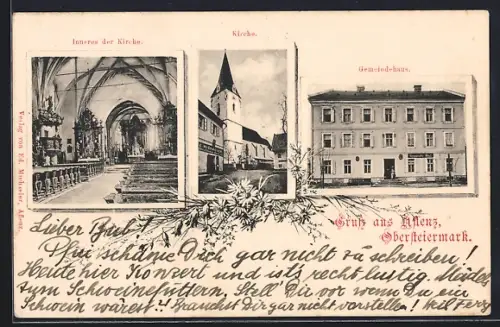 Inneres der Kirche.
Kirche.
Gemeindehaus.
Verlag von Ed.
Gruß aus Aflenz,
Obersteiermark.
Lieber Bub!
Pfui schäme Dich gar nicht zu schreiben!
Heute hier Konzert und ists recht lustig.
zum Schweinefüttern, Stell' Dir vor wenn Du ein
Schwein wärest!! Brauchst Dir gar nicht vorstellen!